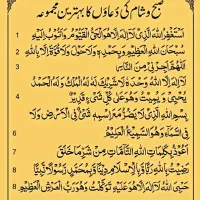 صبح و شام کی دعاؤں کا بہترین مجموعہ
1 استغفر الله الذي لا اله الا هو الحي القيوم واتوب اليه
2 سبحان الله العظيم وبحمده ولا حول ولا قوة الا بالله
3 اللهم اجرني من النار
4 لا اله الا الله وحده لا شريك له له الملك وله الحمد
يحيي ويميت وهو على كل شيء قدير
5 بسم الله الذي لا يضر مع اسمه شيء في الارض ولا
في السماء وهو السميع العليم
6 اعوذ بكلمات الله التامات من شر ما خلق
7 رضيت بالله ربا وبالاسلام دينا وبمحمد رسولا نبيا
8 حسبي الله لا اله الا هو عليه توكلت وهو رب العرش العظيم